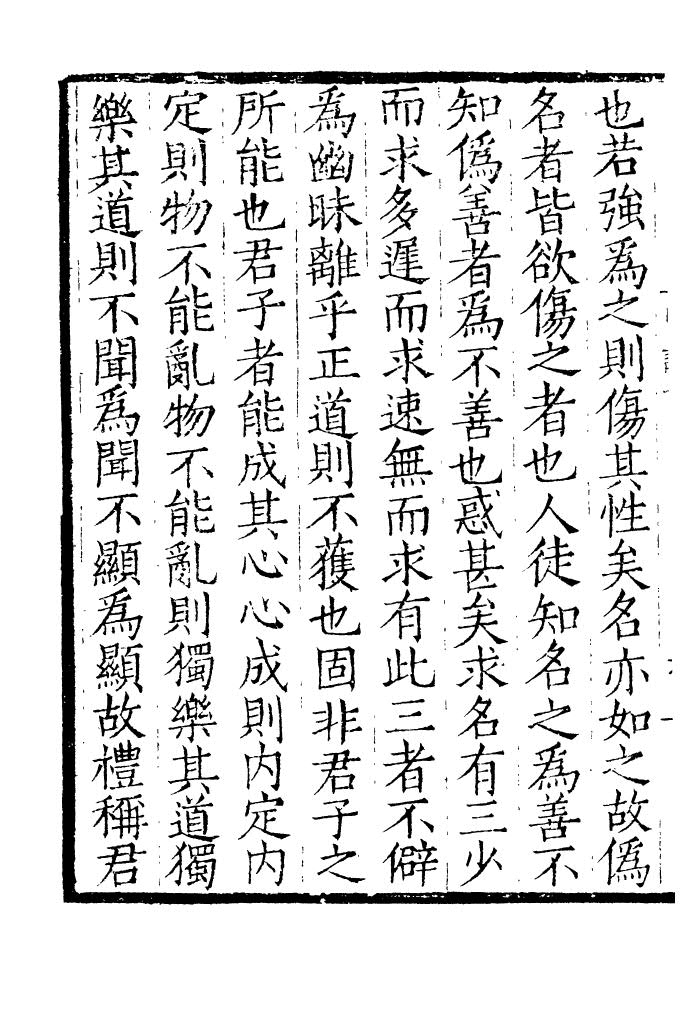 也若強爲之則傷其性矣名亦如之故僞
名者皆欲傷之者也人徒知名之爲善不
知僞善者爲不善也惑甚矣求名有三少
而求多遲而求速無而求有此三者不僻
爲幽昧離乎正道則不獲也固非君子之
所能也君子者能成其心心成則內定內
定則物不能亂物不能亂則獨樂其道獨
樂其道則不聞爲聞不顯爲顯故禮稱君